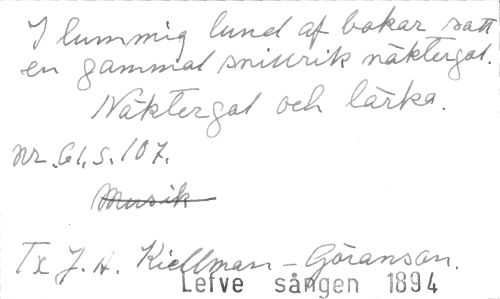 I lummig lund af bokar satt
en gammal snillrik näktergal.
Näktergal och lärka.
Nr. 61, s. 107.
Musik
Tx J. A. Kiellman-Göranson.
Lefve sången 1894